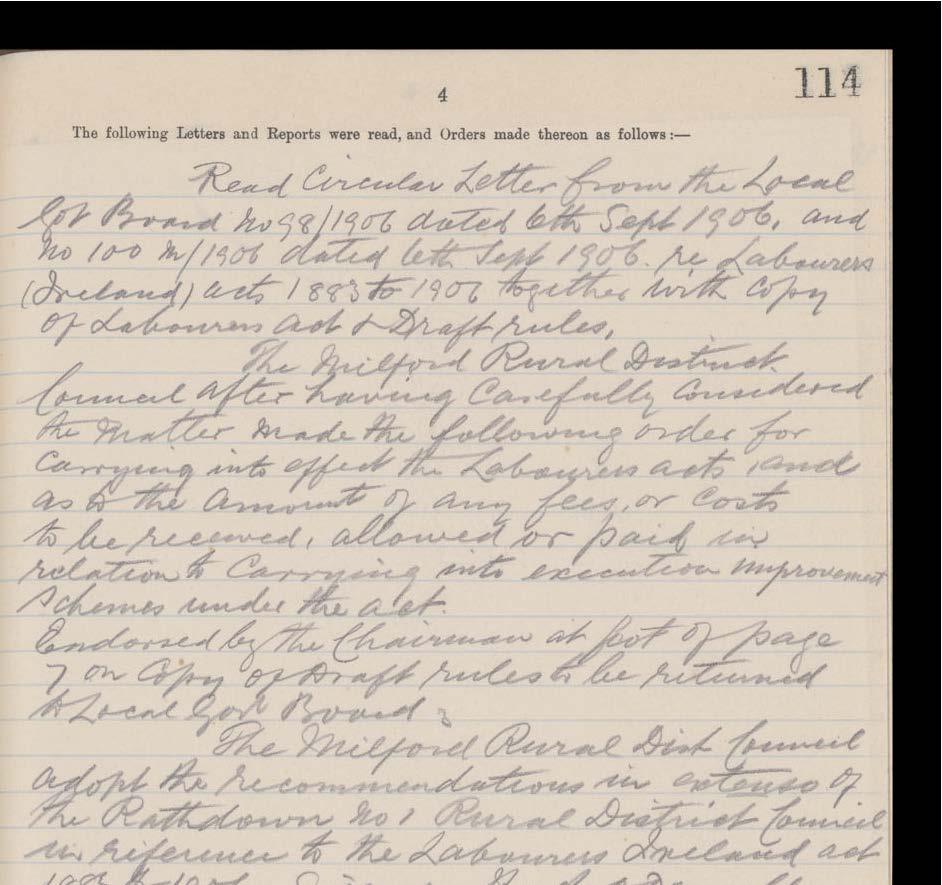 114
4
The following Letters and Reports were read, and Orders made thereon as follows:—
Read Circular Letter from the Local
Gov Board No 98/1906 dated 6th Sept 1906, and
No 100 M/1906 dated 6th Sept 1906. re Labourers
(Ireland) acts 1883 to 1906 together with Copy
of Labourers Act & Draft rules,
The Milford Rural District
Council after having Carefully Considered
the matter made the following order for
Carrying into effect the Labourers acts, and
as to the amount of any fees, or Costs
to be received, allowed or paid in
relation to Carrying into execution improvement
Schemes under the act.
Endorsed by the Chairman at foot of page
7 on Copy of Draft rules to be returned
to Local Gov Board;
The Milford Rural Dist Council
adopt the recommendations in extenso of
the Rathdown No 1 Rural District Council
in reference to the Labourers Ireland act